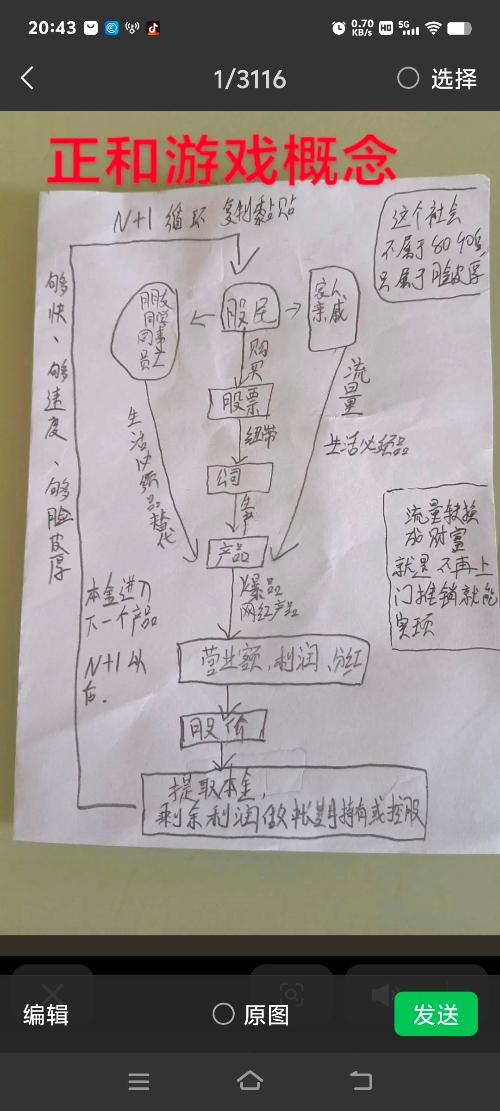 20:43
0.70 KB/s HD 5G
1/3116
选择
正和游戏概念
N+1 循环 复制黏贴
这个社会
不属于80 90后,
只属于脸皮厚
够快、够速度、够脸皮厚
朋友
同学
同事
员工
股民
家人,
亲戚
购买
股票
纽带
流量
生活必须品
生活必须品替代
公司
生产
产品
爆品,
网红产品
流量转换
成财富
就是不再上
门推销就能
实现
本金进入
下一个产品
N+1 以
右.
营业额,利润,分红
股价
提取本金,
剩余利润做长期持有或控股
编辑
原图
发送